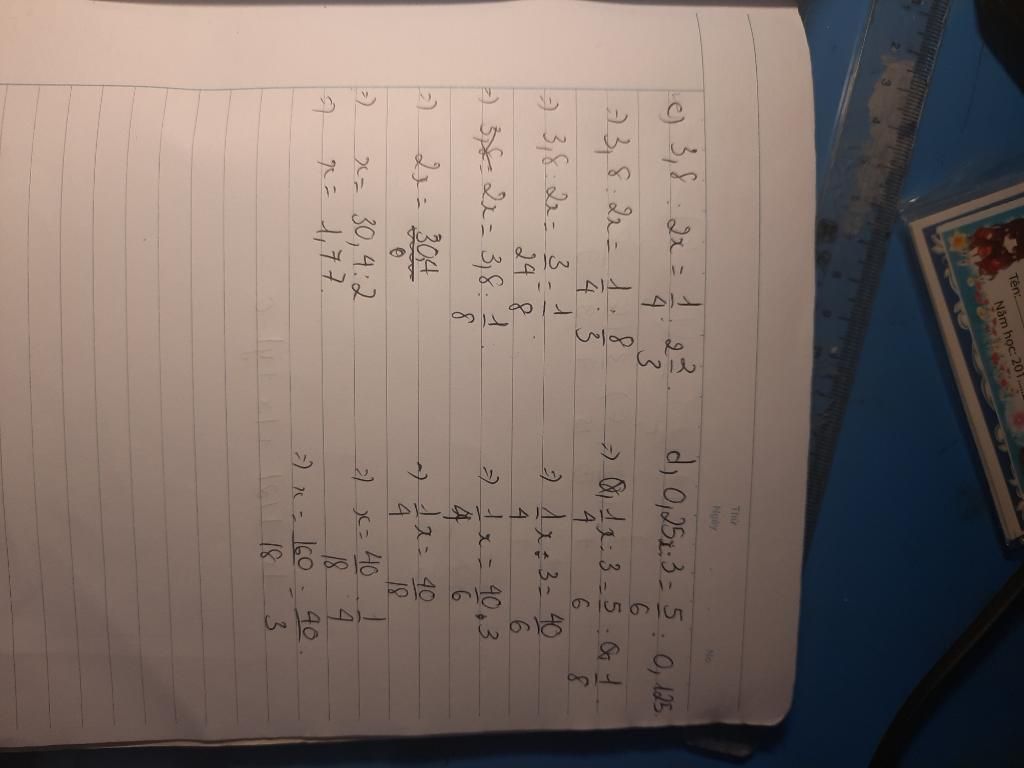 Thứ
Ngày
No
c) 3,8 : 2x = 1/4 : 2 2/3
=) 3,8 : 2x = 1/4 : 8/3
=) 3,8 : 2x = 3/24 = 1/8
=) 2x = 3,8 : 1/8
=) 2x = 30,4
=) x = 30,4 : 2
=) x = 1,77
d, 0,25x : 3 = 5/6 : 0,125
=) 1/4 x : 3 = 5/6 : 1/8
=) 1/4 x : 3 = 40/6
=) 1/4 x = 40/6 . 3
=) 1/4 x = 40/18
=) x = 40/18 : 1/4
=) x = 160/18 = 40/3
Tên:
Năm học: 201